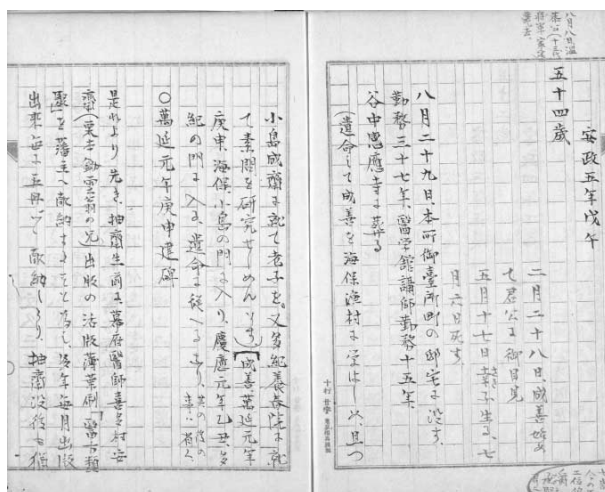 八月八日温
安政五年戊午
五十四歳
二月二十八日、成善始め
て君公に御目見
五月十七日幸子生る、七
月六日死す、
八月二十九日、本所御臺所町の邸宅に没す、
勤務三十七年、醫学館講師勤務十五年、
谷中感應寺に葬る
(遺命して成善を海保漁村に学ばしめ、且つ
十行 廿字
小島成齋に就て老子を、又多紀養春院に就
て素問を研究せしめんとす)【成善萬延元年
庚申、海保小島の門に入り、慶應元年乙丑、多
紀の門に入る、遺命に従へるなり、
○萬延元年庚申建碑
是れより先き、抽齋生前に、幕府醫師喜多村安
齋(栗本鋤雲翁の兄)出版の活版薄葉刷「醫方類
聚」を藩主へ献納することと為し、後年毎月出版
出来毎に五冊づゝ献納しをり、抽齋没後も猶